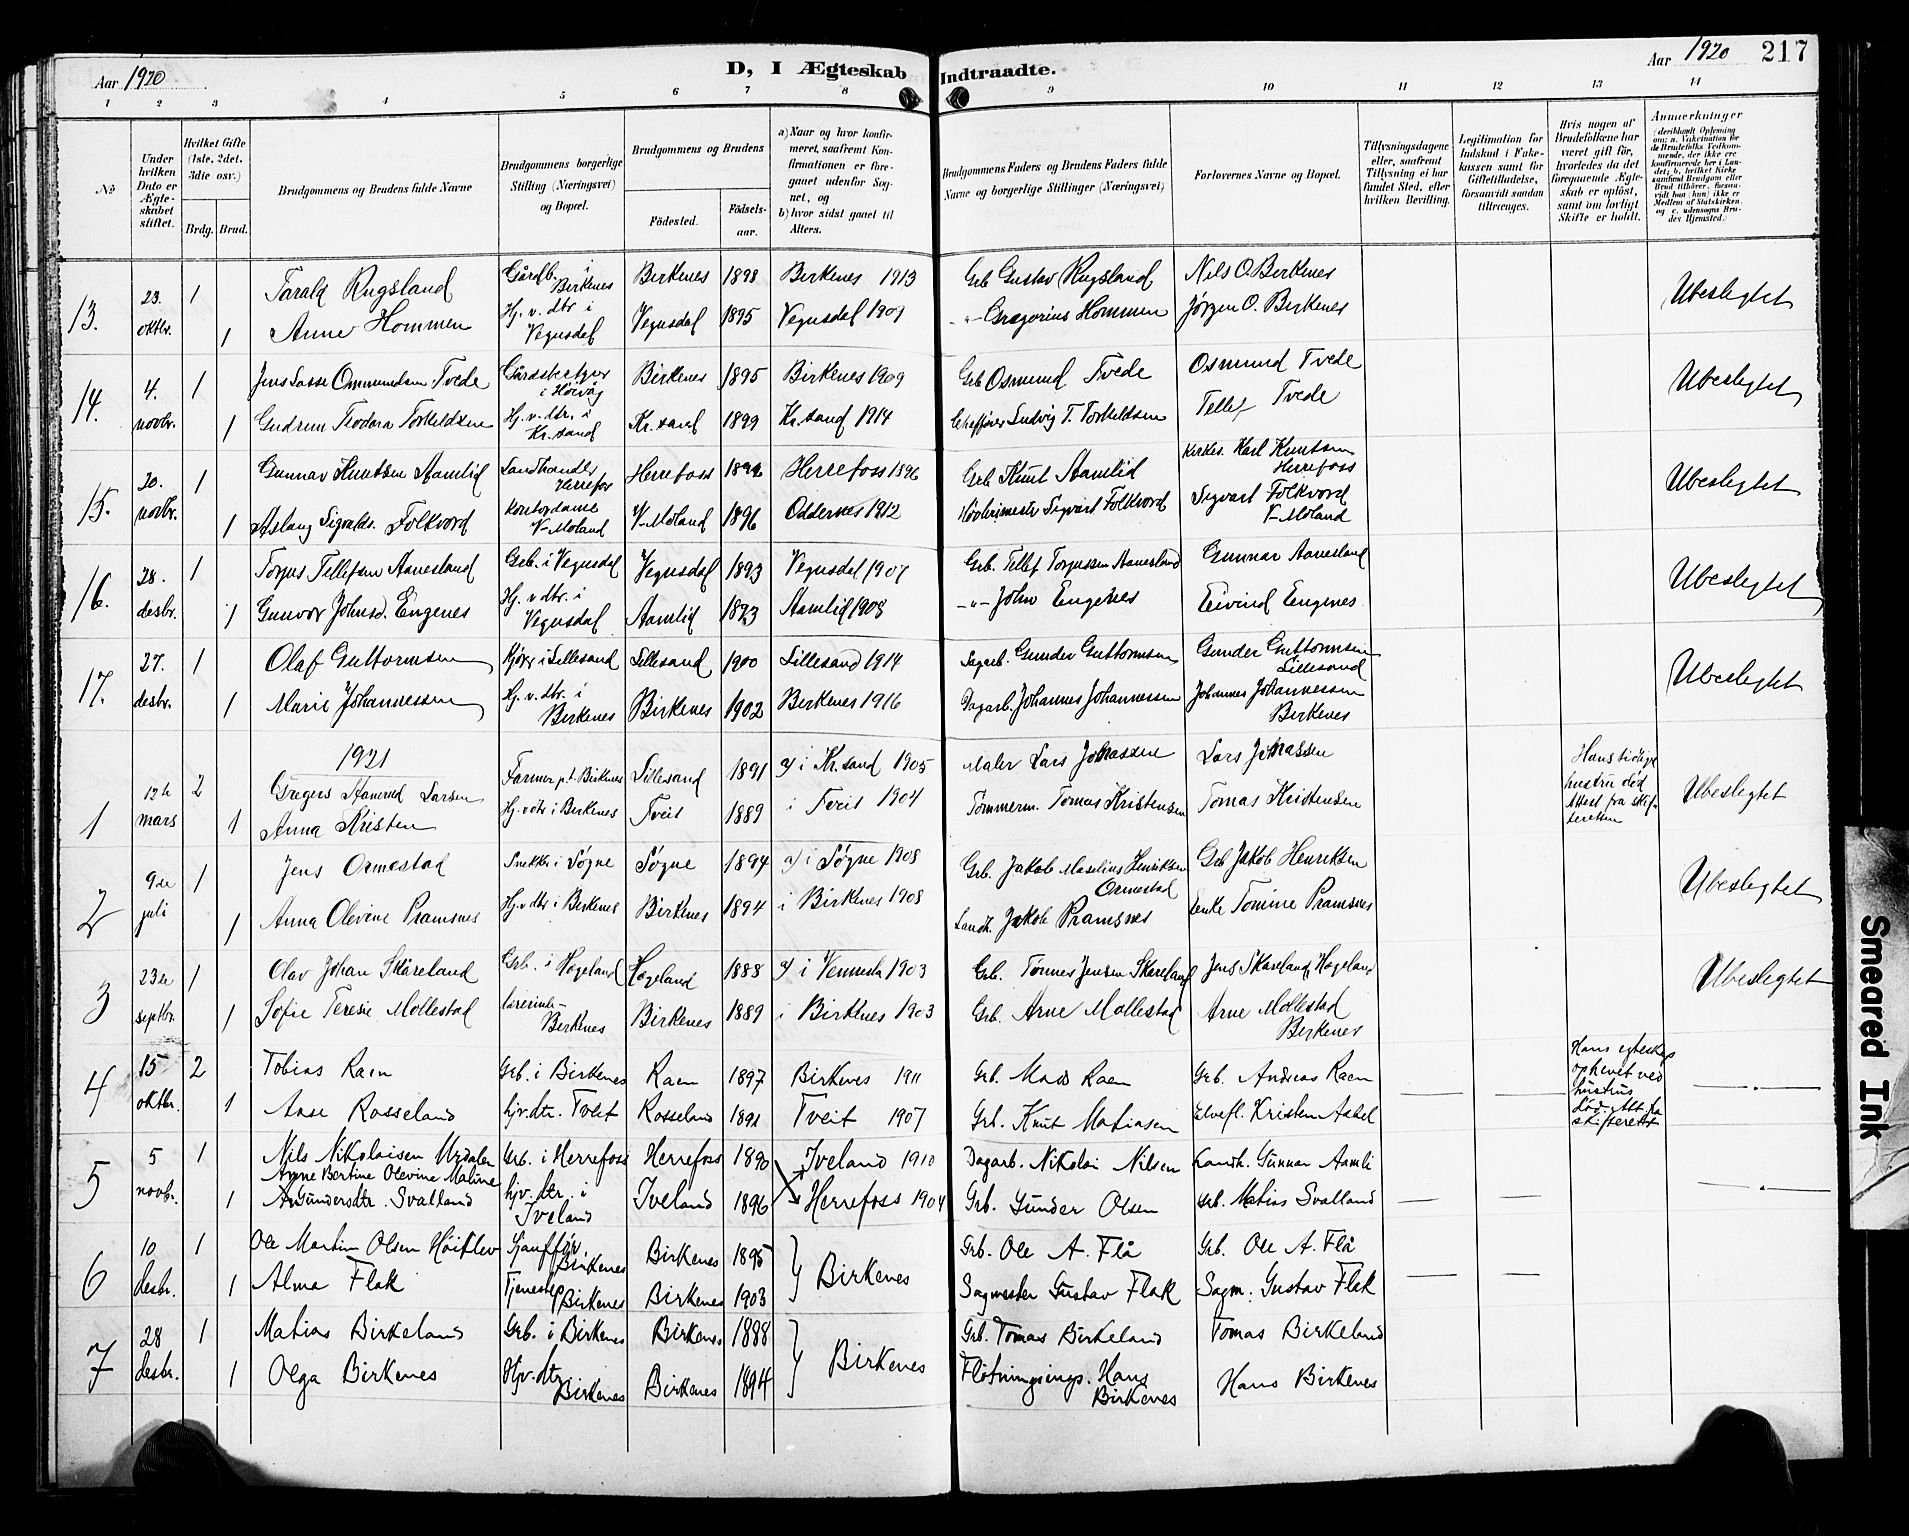 Aar 1920
D, I Ægteskab Indtraadte.
Aar 1920 217
1 2 3 4 5 6 7 8 9 10 11 12 13 14
No
Under hvilken Dato er Ægteskabet stiftet.
Hvilket Gifte (1ste, 2det, 3die osv.)
Brdg. Brud.
Brudgommens og Brudens fulde Navne
Brudgommens borgerlige Stilling (Næringsvei) og Bopæl.
Brudgommens og Brudens
Födested. Födsels-aar.
a) Naar og hvor konfirmeret, saafremt Konfirmationen er foregaaet udenfor Sognet, og
b) hvor sidst gaaet til Alters.
Brudgommens Faders og Brudens Faders fulde Navne og borgerlige Stillinger (Næringsvei)
Forlovernes Navne og Bopæl.
Tillysningsdagene eller, saafremt Tillysning ei har fundet Sted, efter hvilken Bevilling.
Legitimation for Indskud i Fukekassen samt for Giftetilladelse, forsaavidt saadan tiltrænges.
Hvis nogen af Brudefolkene har været gift för, hvorledes da det foregaaende Ægteskab er oplöst, samt om lovligt Skifte er holdt.
Anmærkninger
13. 23. oktbr. 1 Tarald Rugsland Gårdb. i Birkenes Birkenes 1898 Birkenes 1913 Grb Gustav Rugsland Nils O. Birkenes Ubeslegtet
1 Anne Hommen Hj. v. dtr i Vegusdal Vegusdal 1895 Vegusdal 1909 -"- Gregorius Hommen Jörgen O. Birkenes
14. 4. novbr. 1 Jens Lasse Ommundsen Tvede Gårdsbestyr i Höivåg Birkenes 1895 Birkenes 1909 Grb Osmund Tvede Osmund Tvede Ubeslegtet
1 Gudrun Teodora Torkeldsen Hj. v. dtr. i Kr. sand Kr. sand 1899 Kr. sand 1914 Ludvig T. Torkeldsen Tellef Tvede
15. 20. novbr. 1 Gunnar Knutsen Aamlid Landhandler Herrefos Herrefoss Herrefoss 1896 Grb Knut Aamlid Kirkes. Karl Knutsen Herrefoss Ubeslegtet
1 Aslaug Sigvalds. Folkvord Kontordame V-Moland V-Moland 1896 Oddernes 1912 Sigvart Folkvord Sigvart Folkvord V-Moland
16. 28. desbr. 1 Torjus Tellefsen Aanesland Grb. i Vegusdal Vegusdal 1893 Vegusdal 1907 Grb. Tellef Torjussen Aanesland Gunnar Aanesland Ubeslegtet
1 Gunvor Johnsd. Engenes Hj. v dtr. i Vegusdal Aamlid 1893 Aamlid 1908 -"- John Engenes Eivind Engenes
17. 27. desbr. 1 Olaf Guttormsen i Lillesand Lillesand 1900 Lillesand 1914 Dagarb. Gunder Guttormsen Gunder Guttormsen Lillesand Ubeslegtet
1 Marie Johannessen Hj. v. dtr. i Birkenes Birkenes 1902 Birkenes 1916 Dagarb. Johannes Johannessen Johannes Johannessen Birkenes
1921
1 12te mars 2 Gregers Aanerud Larsen Farmer p.t. Birkenes Lillesand 1891 a) i Kr. sand 1905 Maler Lars Johassen Lars Johassen Hans tidlige hustru död Attest fra skifteretten Ubeslegtet
1 Anna Kristen Hj. v dtr i Birkenes Tveit 1889 i Tveit 1904 Tömmerm. Tomas Kristensen Tomas Kristensen
2 9de juli 1 Jens Ormestad Snekker i Søgne Søgne 1894 a) i Søgne 1908 Grb. Jakob Maselius Henriksen Ormestad Grb Jakob Henriksen Ubeslegtet
1 Anna Olevine Pramsnes Hj. v dtr i Birkenes Birkenes 1894 i Birkenes 1908 Landh. Jakob Pramsnes Enke Tomine Pramsnes
3 23de septbr. 1 Olav Johan Skåreland Grb. i Hægeland Hægeland 1888 a) i Vennesla 1903 Grb. Tönnes Jensen Skåreland Jens Skåreland Hægeland Ubeslegtet
1 Sofie Teresie Mollestad Lærerinde Birkenes Birkenes 1889 i Birkenes 1903 Grb. Arne Mollestad Arne Mollestad Birkenes
4 15 oktbr. 2 Tobias Raen Grb. i Birkenes Raen 1897 Birkenes 1911 Grb. Mads Raen Grb. Andreas Raen — — Hans egteskap ophevet ved hustrus död. Att fra skifterett — . —
1 Aase Rosseland hjv. dtr. Tveit Rosseland 1891 Tveit 1907 Grb. Knut Matiasen Kristen Aabel
5 5 novbr. 1 Nils Nikolaisen Urdalen Grb. i Herrefoss Herrefoss 1890 Iveland 1910 Dagarb. Nikolai Nilsen Landh. Gunnar Aamli — — — . —
Anne Bertine Olevine Maline
1 Gundersdtr. Svalland hjv. dtr. i Iveland Iveland 1896 Herrefoss 1904 Grb. Gunder Olsen Grb. Matias Svalland
6 10 desbr. 1 Ole Martin Olsen Höiklev Sjauffør, Birkenes Birkenes 1895 } Birkenes Grb. Ole A. Flå Grb. Ole A. Flå — —
1 Alma Flak Tjenestep. Birkenes Birkenes 1903 Sagmester Gustav Flak Sagm. Gustav Flak
7 28 desbr. 1 Matias Birkeland Grb. i Birkenes Birkenes 1888 } Birkenes Grb. Tomas Birkeland Tomas Birkeland
1 Olga Birkenes Hjv. dtr Birkenes Birkenes 1894 Fløtningsinsp. Hans Birkenes Hans Birkenes
Smeared Ink